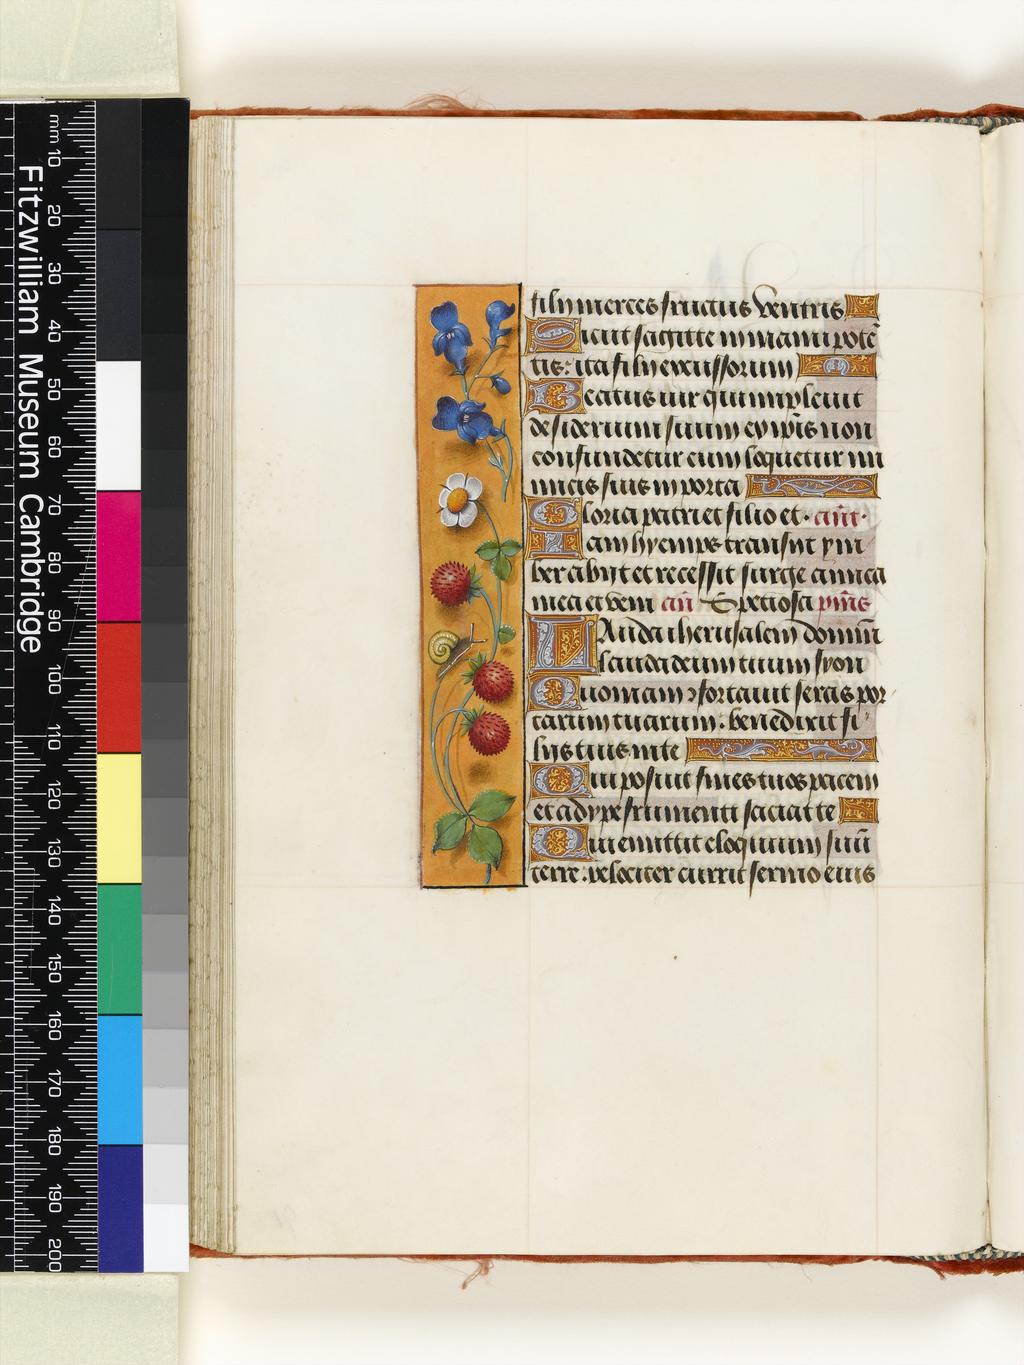 filii merces fructus ventris
Sicut sagitte in manu potē
tis: ita filii excussorum
Beatus vir qui impleuit
desiderium suum ex ip̄is non
confundetur cum loquetur ini
micis suis in porta
Gloria patri et filio et· an̄t·
Iam hyemps transijt ym
ber abijt et recessit surge amica
mea et veni an̄ Speciosa p̄ūs
LAuda iherusalem dominū
lauda deum tuum syon
Quoniam ꝯfortauit seras por
tarum tuarum: benedixit fi
liis tuis in te
Qui posuit fines tuos pacem
et adype frumenti saciat te
Qui emittit eloquium suū
terre: velociter currit sermo eius
Fitzwilliam Museum Cambridge
mm 10 20 30 40 50 60 70 80 90 100 110 120 130 140 150 160 170 180 190 200